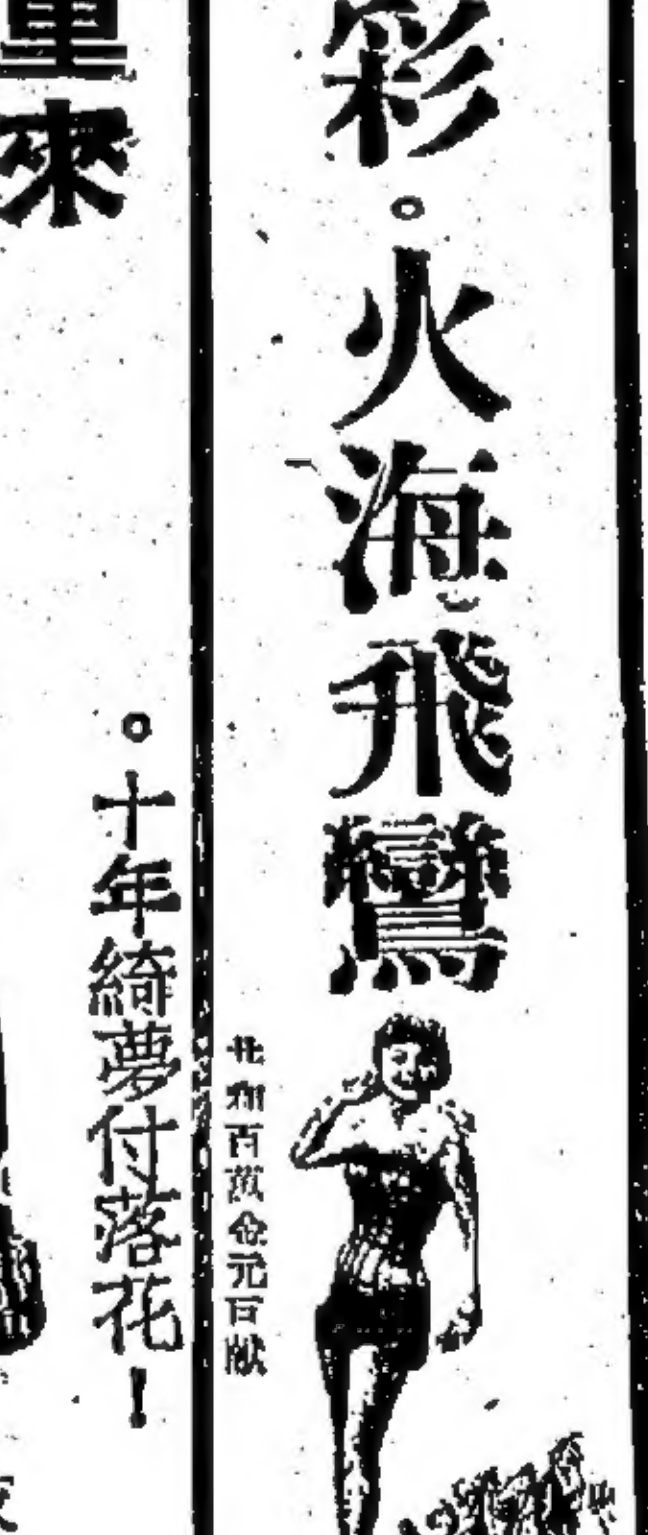 彩。火海飛鸞
共和百萬金元百献
里來
。十年綺夢付落花！